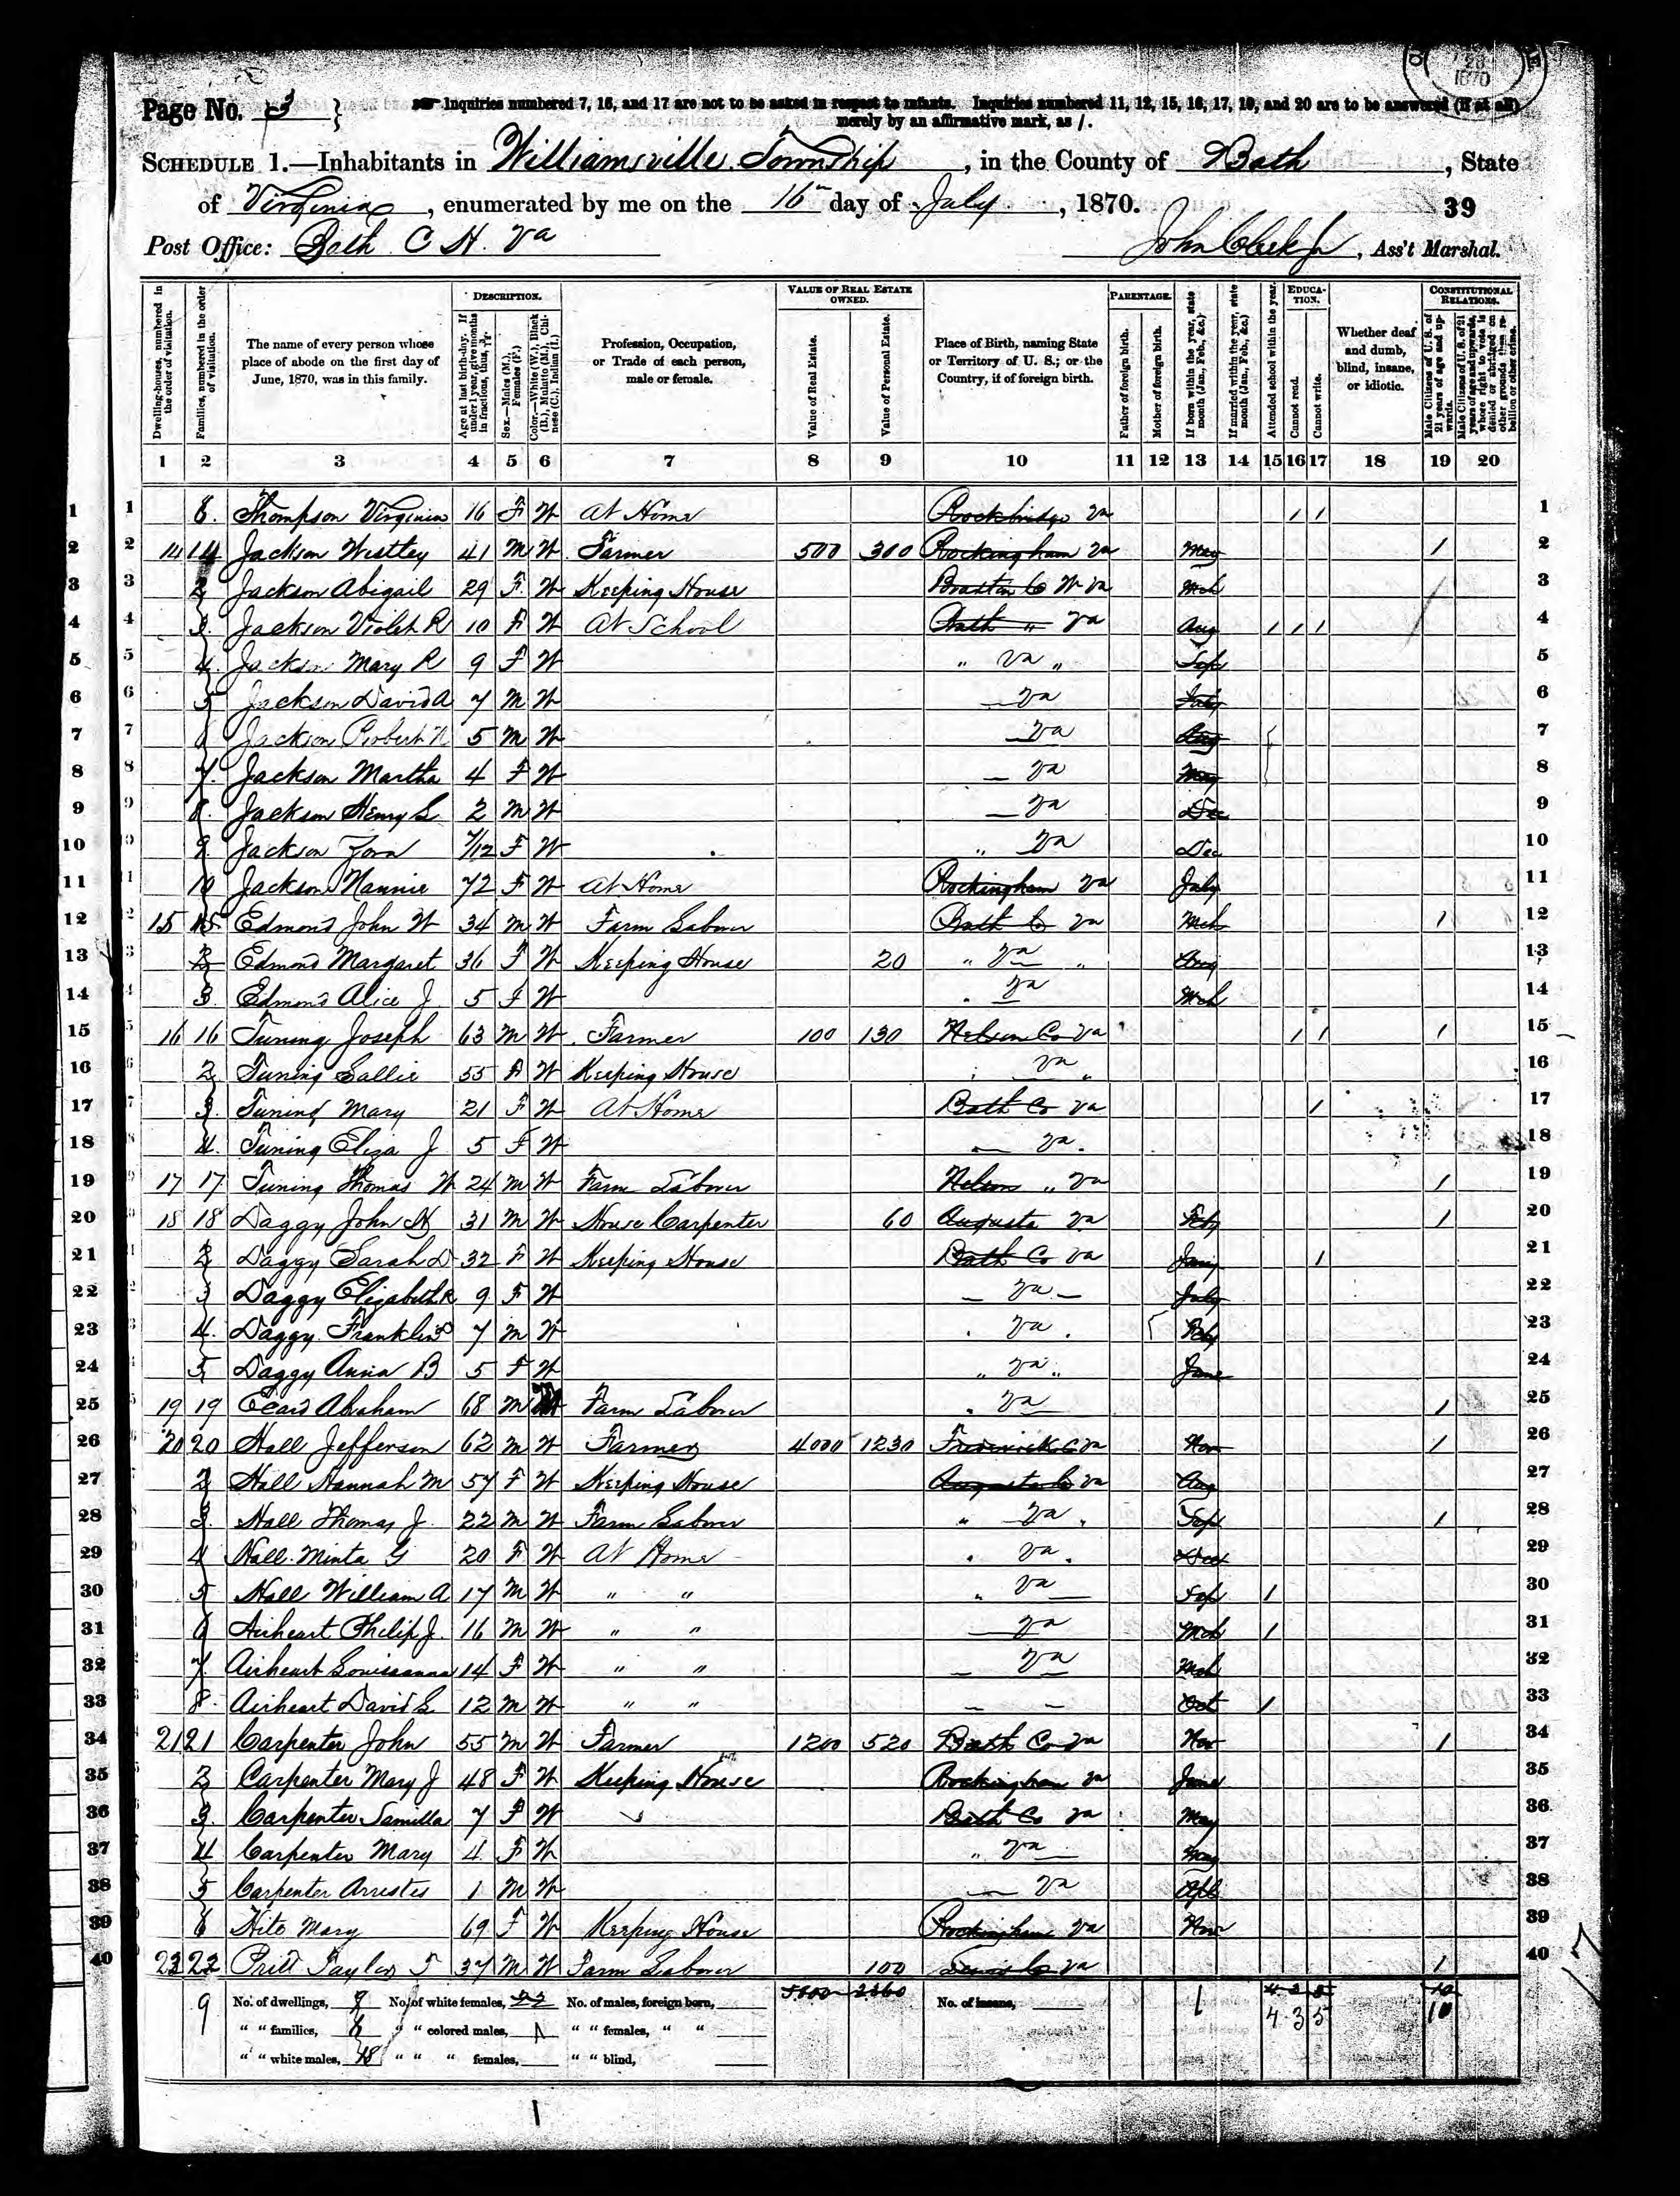 28
1870
Page No. 3 } Inquiries numbered 7, 16, and 17 are not to be asked in respect to infants. Inquiries numbered 11, 12, 15, 16, 17, 19, and 20 are to be answered (if at all)
merely by an affirmative mark, as /.
SCHEDULE 1.—Inhabitants in Williamsville Township, in the County of Bath, State
of Virginia, enumerated by me on the 16 day of July, 1870. 39
Post Office: Bath C H. Va John Cleek Jr, Ass't Marshal.
DESCRIPTION. VALUE OF REAL ESTATE OWNED. PARENTAGE. EDUCATION. CONSTITUTIONAL RELATIONS.
Dwelling-houses, numbered in the order of visitation.
Families, numbered in the order of visitation.
The name of every person whose place of abode on the first day of June, 1870, was in this family.
Age at last birth-day. If under 1 year, give months in fractions, thus,
Sex.—Males (M.), Females (F.)
Color.—White (W.), Black (B.), Mulatto (M.), Chinese (C.), Indian (I.)
Profession, Occupation, or Trade of each person, male or female.
Value of Real Estate.
Value of Personal Estate.
Place of Birth, naming State or Territory of U. S.; or the Country, if of foreign birth.
Father of foreign birth.
Mother of foreign birth.
If born within the year, state month (Jan., Feb., &c.)
If married within the year, state month (Jan., Feb., &c.)
Attended school within the year.
Cannot read.
Cannot write.
Whether deaf and dumb, blind, insane, or idiotic.
Male Citizens of U. S. of 21 years of age and upwards.
Male Citizens of U. S. of 21 years of age and upwards, whose right to vote is denied or abridged on other grounds than rebellion or other crime.
1 2 3 4 5 6 7 8 9 10 11 12 13 14 15 16 17 18 19 20
1 Thompson Virginia 16 F W At Home Rockbridge Va / / 1
2 14 14 Jackson Westley 41 M W Farmer 500 300 Rockingham Va May / 2
3 2 Jackson Abigail 29 F W Keeping House Braxton Co W Va Mch 3
4 3 Jackson Violet R 10 F W At School Bath " Va Aug / / / 4
5 4 Jackson Mary R 9 F W " Va " Sep 5
6 5 Jackson David A 7 M W Va July 6
7 Jackson Robert 5 M W Va Aug 7
8 7 Jackson Martha 4 F W Va May 8
9 8 Jackson Henry L 2 M W Va Dec 9
10 9 Jackson Zora 7/12 F W " Va Dec 10
11 10 Jackson Nannie 72 F W At Home Rockingham Va July 11
12 15 15 Edmond John W 34 M W Farm Labour Bath Co Va Mch / 12
13 2 Edmond Margaret 36 F W Keeping House 20 " Va " Aug 13
14 3 Edmond Alice J 5 F W Va Mch 14
15 16 16 Tuning Joseph 63 M W Farmer 100 130 Nelson Co Va / / / 15
16 2 Tuning Sallie 55 F W Keeping House Va 16
17 3 Tuning Mary 21 F W At Home Bath Co Va / 17
18 4 Tuning Eliza J 5 F W Va 18
19 17 17 Tuning Thomas W 24 M W Farm Labour Nelson " Va / 19
20 18 18 Daggy John N 31 M W House Carpenter 60 Augusta Va Feby / 20
21 2 Daggy Sarah D 32 F W Keeping House Bath Co Va Jany / 21
22 3 Daggy Elizabeth R 9 F W Va July 22
23 4 Daggy Franklin 7 M W Va Feby 23
24 5 Daggy Anna B 5 F W " Va " June 24
25 19 19 Abraham 68 M Farm Labour Va / 25
26 20 20 Hall Jefferson 62 M W Farmer 4000 1230 Frederick Co Va Nov / 26
27 2 Hall Hannah M 57 F W Keeping House Augusta Co Va Aug 27
28 3 Hall Thomas J 22 M W Farm Labour " Va " Sep / 28
29 4 Hall Minta G 20 F W At Home Va 29
30 5 Hall William A 17 M W " " Va Sep / 30
31 6 Airheart Philip J. 16 M W " " Va Mch / 31
32 7 Airheart Louisanna 14 F W " " Va Mch 32
33 8 Airheart David L 12 M W " " Oct / 33
34 21 21 Carpenter John 55 M W Farmer 1200 520 Bath Co Va Nov / 34
35 2 Carpenter Mary J 48 F W Keeping House Rockingham Va June 35
36 3 Carpenter Samilla 7 F W Bath Co Va May 36
37 4 Carpenter Mary 4 F W " Va 37
38 5 Carpenter Arrestes 1 M W Va Apl 38
39 6 Hite Mary 69 F W Keeping House Rockingham Va Nov 39
40 22 22 Pritt Taylor T 37 M W Farm Labour 100 Lewis Co Va / 40
9 No. of dwellings, 9 No. of white females, 22 No. of males, foreign born, 5800 2360 No. of insane, 1 4 3 5 10
" " families, " " colored males, 1 " " females, " " 4 3 5 10
" " white males, 18 " " " females, " " blind,